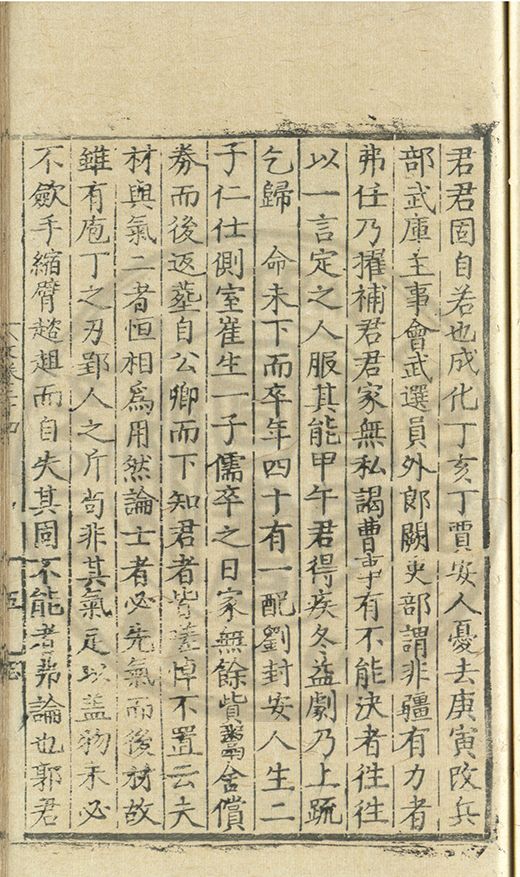 君君固自若也成化丁亥丁賈安人憂去庚寅改兵
部武庫主事會武選員外郎闕吏部謂非疆有力者
弗任乃擢補君君家無私謁曹事有不能決者往往
以一言定之人服其能甲午君得疾冬益劇乃上䟽
乞歸　命未下而卒年四十有一配劉封安人生二
子仁仕側室崔生一子儒卒之日家無餘貲鬻舍償
券而後返塟自公卿而下知君者皆嗟悼不置云夫
材與氣二者恒相爲用然論士者必先氣而後材故
雖有庖丁之刃郢人之斤尚非其氣足以盖物未必
不歛手縮臂趑趄而自失其固不能者弗論也郭君